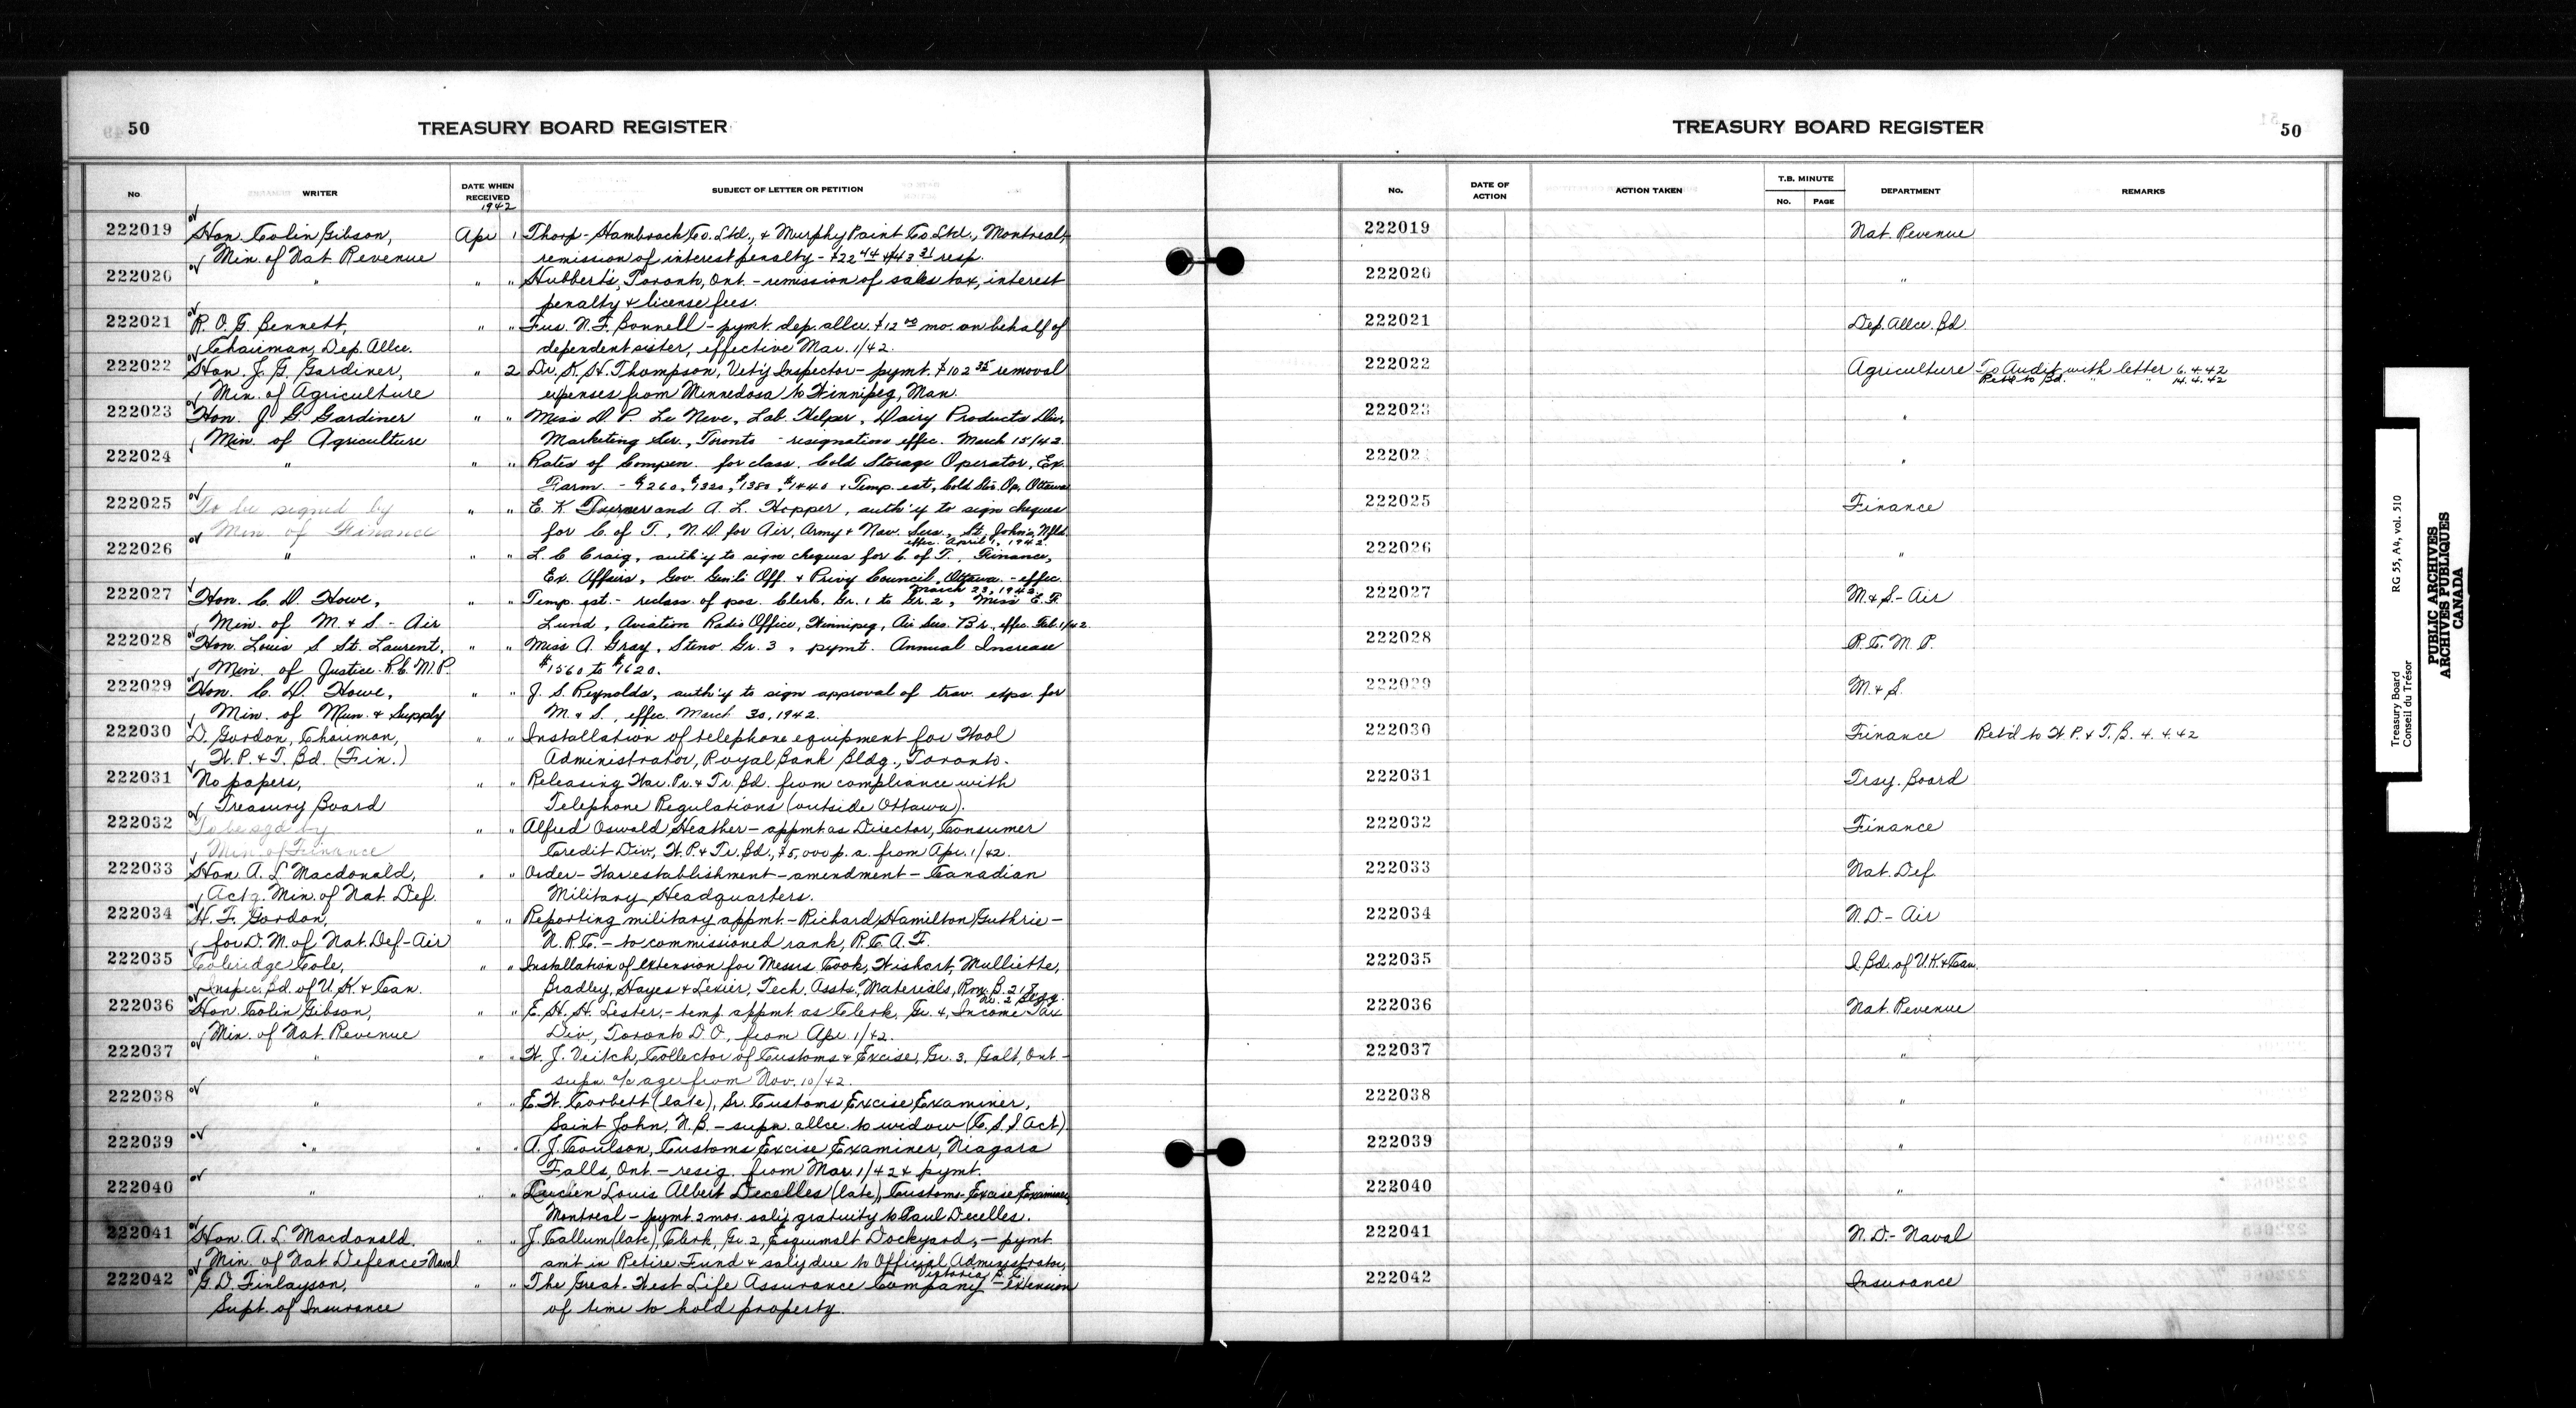 50
TREASURY BOARD REGISTER
No. WRITER DATE WHEN RECEIVED SUBJECT OF LETTER OR PETITION
1942
222019 Hon. Colin Gibson, Apr 1 Thorp-Hambrock Co. Ltd., & Murphy Paint Co. Ltd., Montreal,
Min. of Nat. Revenue remission of interest penalty - $22.44 & $43.31 resp.
222020 " " " Hubbert's, Toronto, Ont. - remission of sales tax, interest
penalty & license fees.
222021 R. O. G. Bennett, " " Fus. N. F. Bonnell - pymt. dep. allce. $12.00 mo. on behalf of
Chairman, Dep. Allce. dependent sister, effective Mar. 1/42.
222022 Hon. J. G. Gardiner, " 2 Dr. K. H. Thompson, Vet'y Inspector - pymt. $102.35 removal
Min. of Agriculture expenses from Minnedosa to Winnipeg, Man.
222023 Hon. J. G. Gardiner " " Miss D. P. Le Neve, Lab. Helper, Dairy Products Div.
Min. of Agriculture Marketing Ser., Toronto - resignation effec. March 15/42.
222024 " " " Rates of Compen. for class. Cold Storage Operator, Ex.
Farm. - $1260, $1320, $1380, $1440 & Temp. est, Cold Stor. Op. Ottawa
222025 To be signed by " " E. K. Turner and A. L. Hopper, auth'y to sign cheques
Min. of Finance for C. of T., N. D. for Air, Army & Nav. Sers., St. John's, Nfld.
effec. April 1, 1942.
222026 " " " L. C. Craig, auth'y to sign cheques for C. of T., Finance,
Ex. Affairs, Gov. Gen'l's Off. & Privy Council, Ottawa. - effec.
March 23, 1942.
222027 Hon. C. D. Howe, " " Temp. est. - reclass. of pos. Clerk, Gr. 1 to Gr. 2, Miss E. F.
Min. of M. & S. - Air Lund, Aviation Radio Office, Winnipeg, Air Ser. Br., effec. Feb. 1/42
222028 Hon. Louis S. St. Laurent, " " Miss A. Gray, Steno. Gr. 3, pymt. Annual Increase
Min. of Justice - R.C.M.P. $1560 to $1620.
222029 Hon. C. D. Howe, " " J. S. Reynolds, auth'y to sign approval of trav. exps. for
Min. of Mun. & Supply M. & S., effec. March 30, 1942.
222030 D. Gordon, Chairman, " " Installation of telephone equipment for Wool
W. P. & T. Bd. (Fin.) Administrator, Royal Bank Bldg., Toronto.
222031 No papers, " " Releasing War. Pr. & Tr. Bd. from compliance with
Treasury Board Telephone Regulations (outside Ottawa).
222032 To be sgd by " " Alfred Oswald Heather - appmt. as Director, Consumer
Min. of Finance Credit Div., W. P. & Tr. Bd., $5,000 p. a. from Apr. 1/42.
222033 Hon. A. L. Macdonald, " " Order - War establishment - amendment - Canadian
Actg. Min. of Nat. Def. Military Headquarters.
222034 H. F. Gordon, " " Reporting military appmt. - Richard Hamilton Guthrie -
for D. M. of Nat. Def - Air N. R. C. - to commissioned rank, R. C. A. F.
222035 Coleridge Cole, " " Installation of extension for Messrs Cook, Wishart, Mulliette,
Inspec. Bd. of U. K. & Can. Bradley, Hayes & Lexier, Tech. Assts., Materials, Rm. B. 218
No. 2 Bldg.
222036 Hon. Colin Gibson, " " E. H. H. Lester, - temp. appmt. as Clerk, Gr. 4, Income Tax
Min. of Nat. Revenue Div., Toronto D. O., from Apr. 1/42.
222037 " " " W. J. Veitch, Collector of Customs & Excise, Gr. 3, Galt, Ont. -
supn. a/c age from Nov. 10/42.
222038 " " " E. W. Corbett (late), Sr. Customs Excise Examiner,
Saint John, N. B. - supn. allce. to widow (C. S. S. Act).
222039 " " " A. J. Coulson, Customs Excise Examiner, Niagara
Falls, Ont. - resig. from Mar. 1/42 & pymt.
222040 " " " Lucien Louis Albert Decelles (late), Customs-Excise Examiner,
Montreal - pymt. 2 mos. sal'y gratuity to Paul Decelles.
222041 Hon. A. L. Macdonald. " " J. Callum (late), Clerk, Gr. 2, Esquimalt Dockyard, - pymt
Min. of Nat Defence - Naval amt in Retire. Fund & sal'y due to Official Administrator,
Victoria, B. C.
222042 G. D. Finlayson, " " The Great-West Life Assurance Company - extension
Supt. of Insurance of time to hold property.
TREASURY BOARD REGISTER
50
No. DATE OF ACTION ACTION TAKEN T.B. MINUTE No. PAGE DEPARTMENT REMARKS
222019 Nat. Revenue
222020 "
222021 Dep. Allce. Bd.
222022 Agriculture To Audit with letter 6.4.42
Ret'd to Bd. " " 14.4.42
222023 "
22202 "
222025 Finance
222026 "
222027 M. & S. - Air
222028 R. C. M. P.
222029 M. & S.
222030 Finance Ret'd to W. P. & T. B. 4.4.42
222031 Trsy. Board
222032 Finance
222033 Nat. Def.
222034 N. D. - Air
222035 I. Bd. of U.K. & Can.
222036 Nat. Revenue
222037 "
222038 "
222039 "
222040 "
222041 N. D. - Naval
222042 Insurance
Treasury Board RG 55, A4, vol. 510
Conseil du Trésor
PUBLIC ARCHIVES
ARCHIVES PUBLIQUES
CANADA